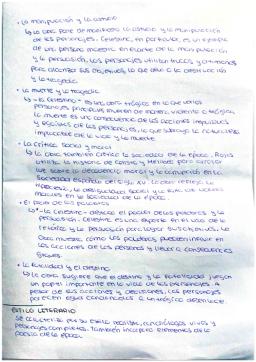 • La manipulación y la astucia
↳ La obra pone de manifiesto la astucia y la manipulación
de los personajes. Celestina, en particular, es un ejemplo
de una persona maestra en el arte de la manipulación
y la persuasión. Los personajes utilizan trucos y artimañas
para alcanzar sus objetivos, lo que lleva a la destrucción
y la tragedia.
• La muerte y la tragedia
↳ "La Celestina" es una obra trágica en la que varios
personajes principales mueren de manera violenta o trágica.
La muerte es una consecuencia de las acciones impulsivas
y egoístas de los personajes, lo que subraya la naturaleza
implacable de la vida y la muerte.
• La crítica social y moral
↳ La obra también critica la sociedad de la época. Rojas
utiliza la historia de Calisto y Melibea para arrojar
luz sobre la decadencia moral y la corrupción en la
sociedad española del siglo XV. La obra refleja la
hipocresía, la desigualdad social y la
en la sociedad de la época.
• El poder de las palabras
↳ "La Celestina" destaca el poder de las palabras y la
persuasión. Celestina es una experta en el uso de la
retórica y la persuasión para lograr sus objetivos. La
obra muestra cómo las palabras pueden influir en
las acciones de las personas y llevar a consecuencias
graves.
• La fatalidad y el destino
↳ La obra sugiere que el destino y la fatalidad juegan
un papel importante en la vida de los personajes. A
pesar de sus acciones y decisiones, los personajes
parecen estar condenados a un trágico desenlace.
ESTILO LITERARIO
Se caracteriza por su estilo realista, con diálogos vivos y
personajes complejos. También incorpora elementos de la
poesía de la época.